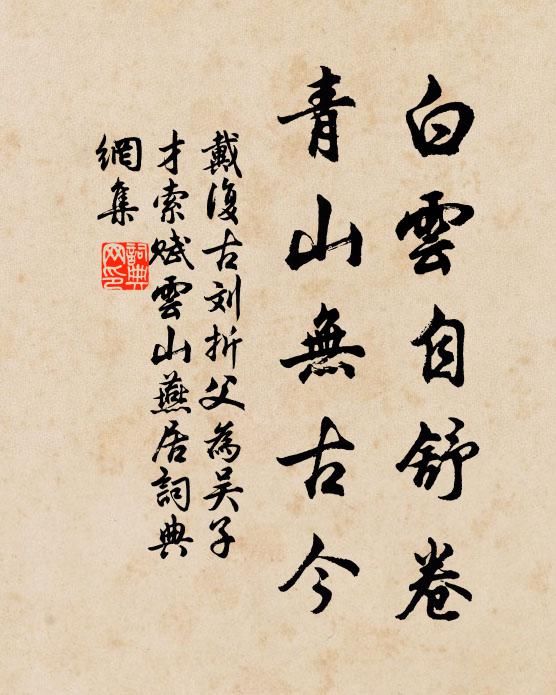 白雲自舒卷
青山無古今
戴復古刘折父為吴子
才索赋雲山燕居詞典
網集
詞典網印